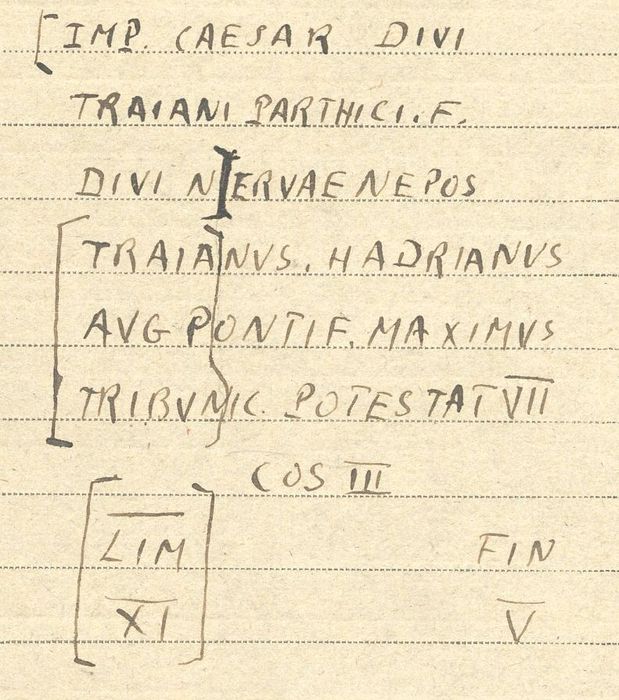 [IMP. CAESAR DIVI
TRAIANI PARTHICI. F.
DIVI N]ERVAE NEPOS
[TRAIA]NVS. HADRIANVS
AVG PONTIF. MAXIMVS
TRIBVNIC. POTESTAT V̅I̅I̅
COS I̅I̅I̅
[L̅I̅M̅] FIN
X̅I̅ V̅